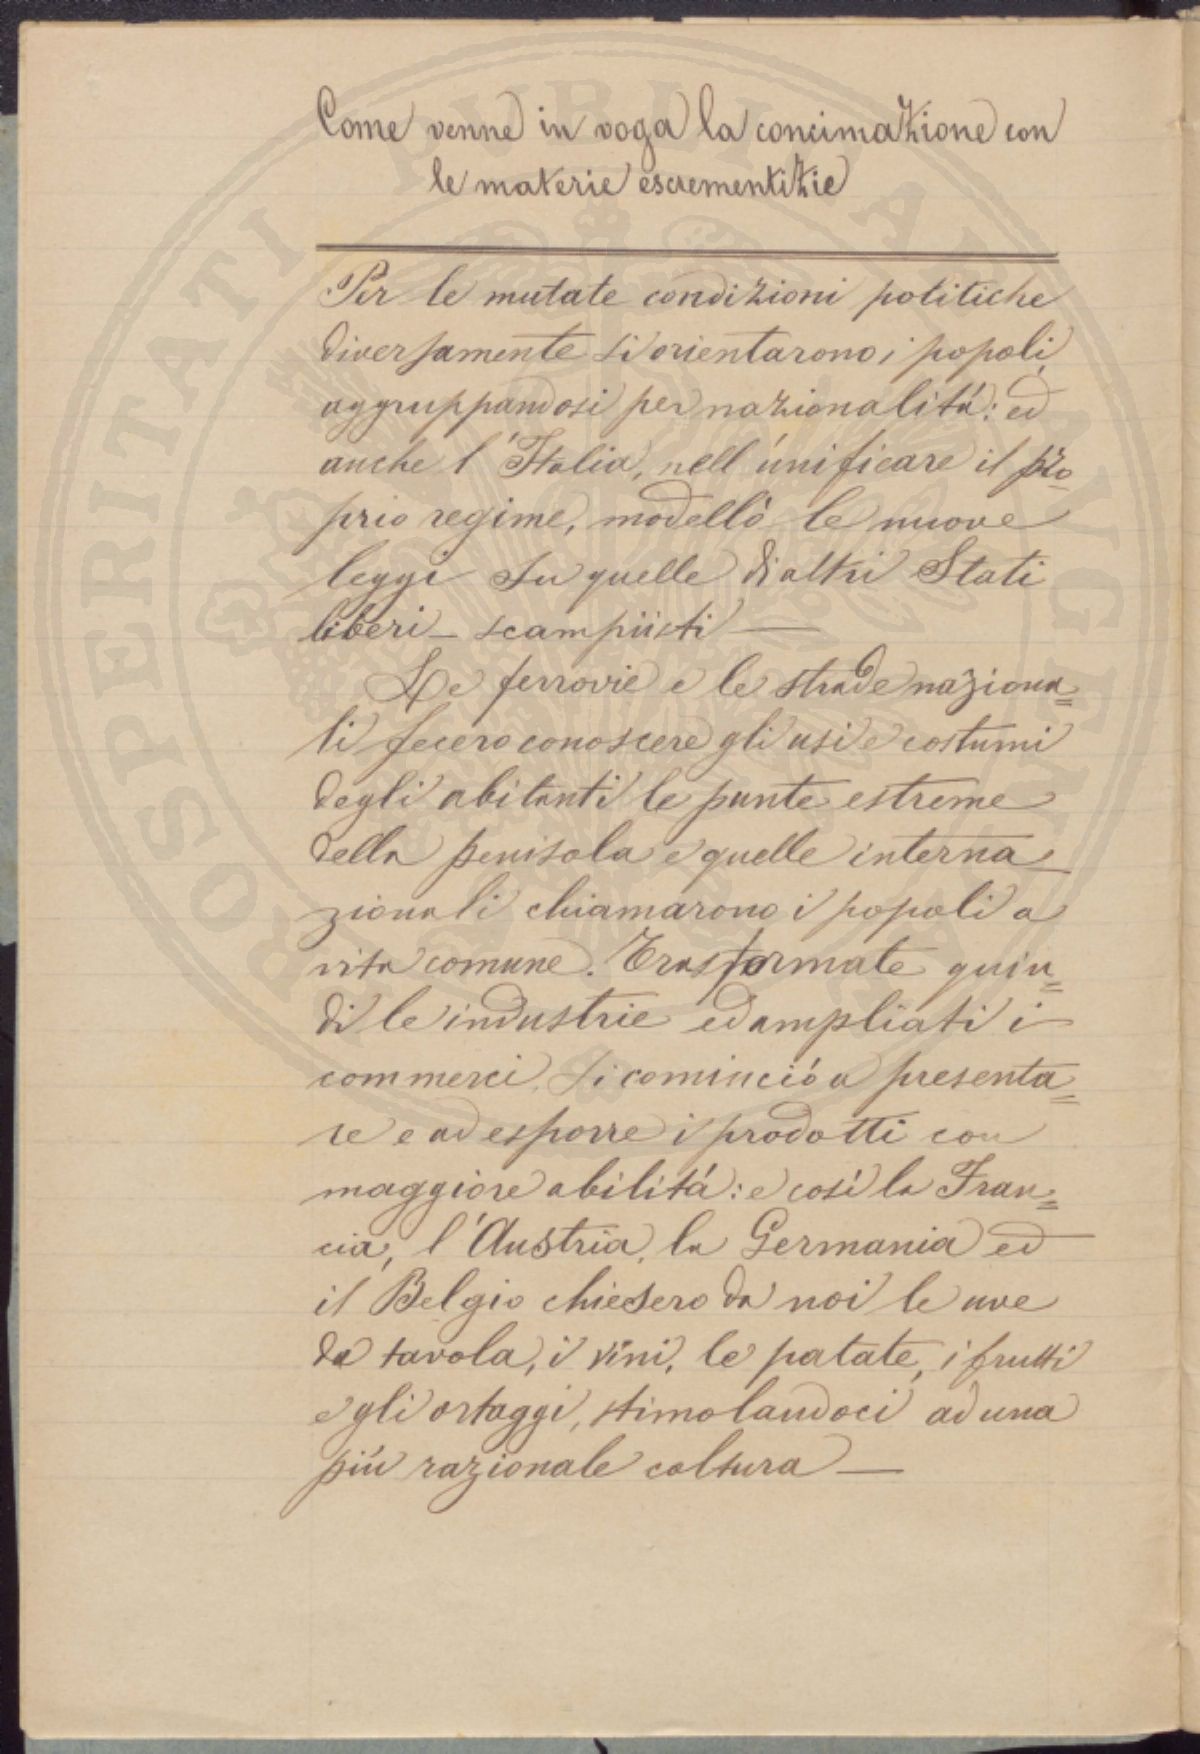 Come venne in voga la concimazione con
le materie escrementizie
Per le mutate condizioni politiche
diversamente si orientarono i popoli,
aggruppandosi per nazionalità: ed
anche l'Italia, nell'unificare il pro-
prio regime, modellò le nuove
leggi su quelle di altri Stati
liberi-scampiisti —
Le ferrovie e le strade naziona=
li fecero conoscere gli usi e costumi
degli abitanti le punte estreme
della penisola e quelle interna
zionali chiamarono i popoli a
vita comune. Trasformate quin=
di le industrie ed ampliati i
commerci, si cominciò a presenta=
re e ad esporre i prodotti con
maggiore abilità: e così la Fran=
cia, l'Austria, la Germania ed
il Belgio chiesero da noi le uve
da tavola, i vini, le patate, i frutti
e gli ortaggi, stimolandoci ad una
più razionale coltura —
PROSPERITATI PUBLICAE AUGENDAE